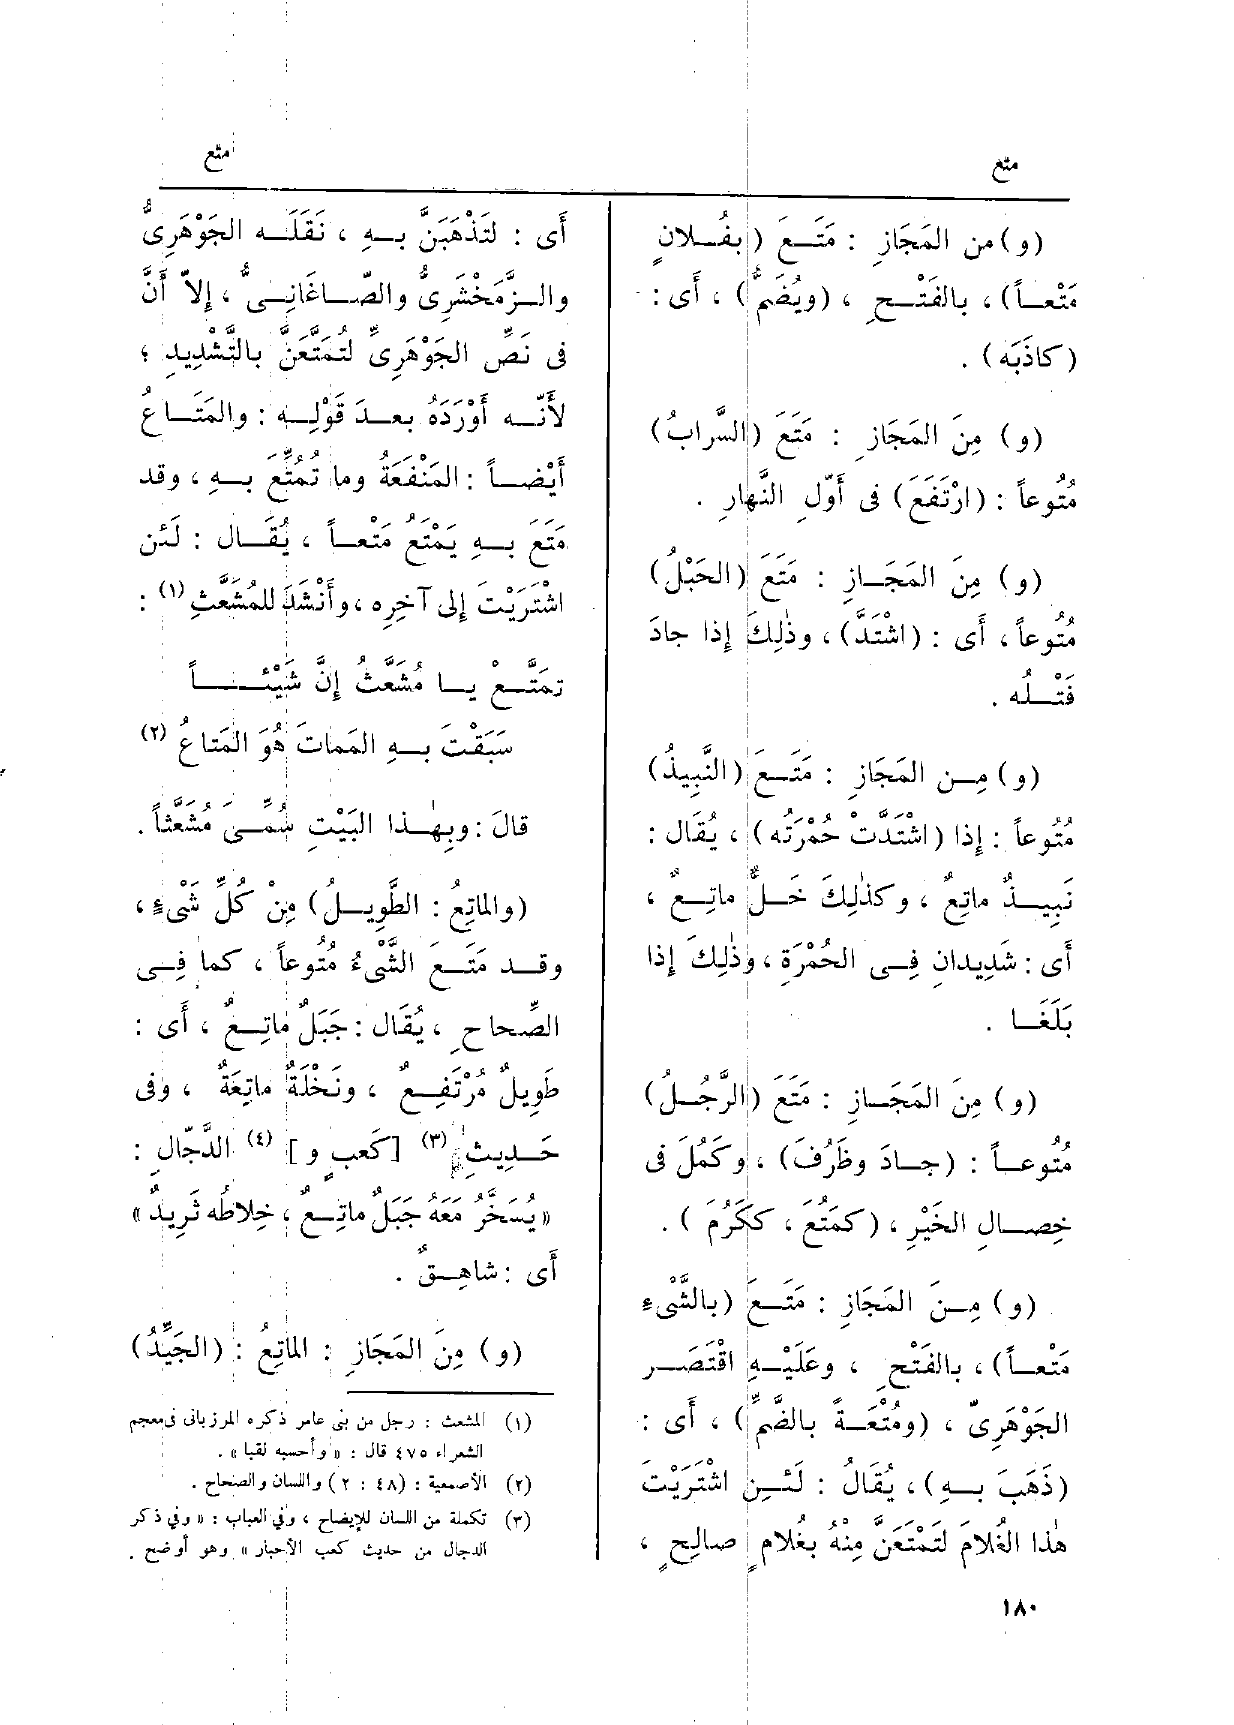 متع
متع
(و) من المَجَازِ : مَتَـعَ (بفُـلانٍ
مَتْعـاً) ، بالفَتْـحِ ، (ويُضَمُّ) ، أَى :
(كاذَبَه) .
(و) مِنَ المَجَازِ : مَتَعَ (السَّرابُ)
مُتُوعاً : (ارْتَفَعَ) فى أَوَّلِ النَّهارِ .
(و) مِنَ المَجَـازِ : مَتَعَ (الحَبْلُ)
مُتُوعاً ، أَى : (اشْتَدَّ) ، وذٰلِكَ إِذا جادَ
فَتْـلُه .
(و) مِـن المَجَازِ : مَتَـعَ (النَّبِيذُ)
مُتُوعاً : إِذا (اشْتَدَّت حُمْرَتُه) ، يُقَال :
نَبِيـذٌ ماتِعٌ ، وكذٰلِكَ خَـلٌّ ماتِـعٌ ،
أَى : شَدِيدانِ فِـى الحُمْرَةِ ، وذٰلِكَ إِذا
بَلَغَـا .
(و) مِنَ المَجَـازِ : مَتَعَ (الرَّجُـلُ)
مُتُوعـاً : (جـادَ وظَرُفَ) ، وكَمُلَ فى
خِصـالِ الخَيْرِ ، (كمَتُعَ ، ككَرُمَ ) .
(و) مِـنَ المَجَازِ : مَتَـعَ (بالشَّىءِ
مَتْعـاً) ، بالفَتْحِ ، وعَلَيْـهِ اقْتَصَـر
الجَوْهَرِىّ ، (ومُتْعَـةً بالضَّمِّ) ، أَى :
(ذَهَبَ بـهِ) ، يُقَالُ : لَئِـنِ اشْتَرَيْتَ
هٰذا الغُلامَ لَتَمْتَعَنَّ مِنْهُ بغُلامٍ صالِحٍ ،
أَى : لتَذْهَبَنَّ بـهِ ، نَقَلَـه الجَوْهَرِىُّ
والـزَّمَخْشَرِىُّ والصّـاغَانِـىُّ ، إِلاّ أَنَّ
فى نَصِّ الجَوْهَرِىِّ لتُمَتَّعَنَّ بالتَّشْدِيدِ ؛
لأَنّـه أَوْرَدَهُ بعـدَ قَوْلِـه : والمَتَـاعُ
أَيْضـاً : المَنْفَعَةُ وما تُمُتِّعَ بـهِ ، وقد
مَتَعَ بـهِ يَمْتَعُ مَتْعـاً ، يُقَـال : لَئن
اشْتَرَيْتَ إِلى آخِرِه ، وأَنْشَدَ للمُشَعَّثِ (١) :
تمَتَّـعْ يـا مُشَعَّثُ إِنَّ شَيْئـاً
سَبَقْتَ بـهِ المَماتَ هُوَ المَتاعُ (٢)
قالَ : وبِهـٰذا البَيْتِ سُمِّـىَ مُشَعَّثاً .
(والماتِعُ : الطَّوِيـلُ) مِنْ كُلِّ شَىْءٍ ،
وقـد مَتَـعَ الشَّىْءُ مُتُوعاً ، كما فِـى
الصِّحاحِ ، يُقَال : جَبَلٌ ماتِـعٌ ، أَى :
طَوِيلٌ مُرْتَفِـعٌ ، ونَخْلَةٌ ماتِعَةٌ ، وفى
حَـدِيثِ (٣) [كَعبٍ و] (٤) الدَّجّالِ :
« يُسَخَّرُ مَعَهُ جَبَلٌ ماتِـعٌ ، خِلاطُه ثَرِيدٌ »
أَى : شاهِـقٌ .
(و) مِنَ المَجَازِ : الماتِعُ : (الجَيِّدُ)
(١) المشعث : رجل من بنى عامر ذكره المرزبانى فى معجم
الشعراء ٤٧٥ قال : « وأحسبه لقبا » .
(٢) الأصمعية : (٤٨ : ٢) واللسان والصحاح .
(٣) تكملة من اللسان للإيضاح ، وفي العباب : « وفي ذكر
الدجال من حديث كعب الأحبار » وهو أوضح .
١٨٠